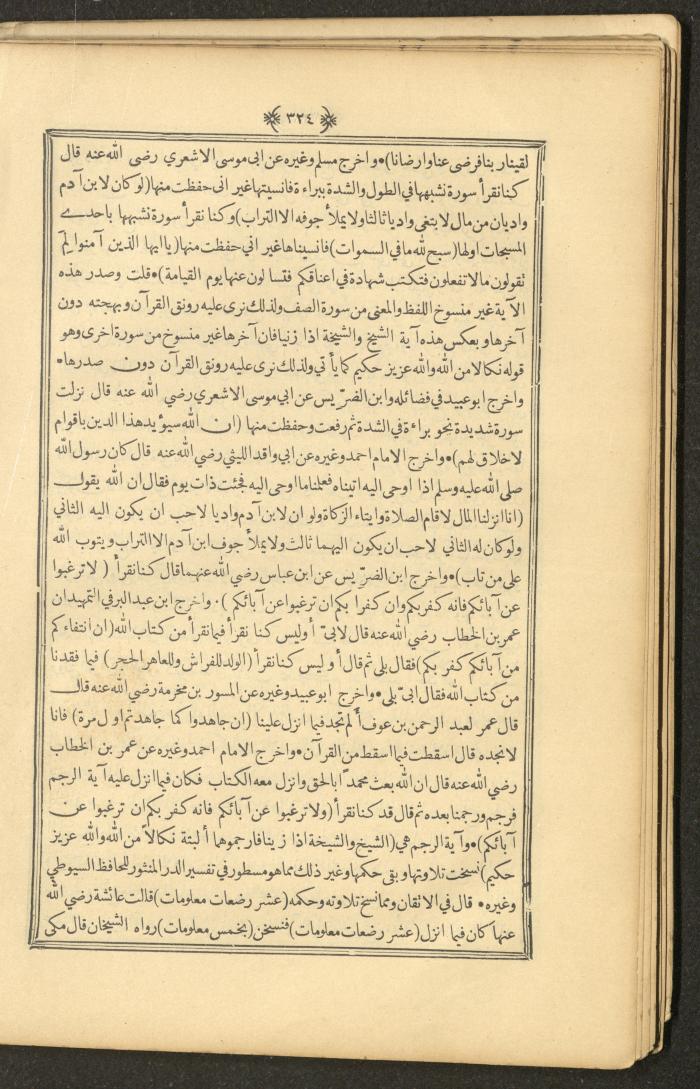 ٣٢٤
لقينا ربنا فرضى عنا وارضانا)•واخرج مسلم وغيره عن ابى موسى الاشعري رضى الله عنه قال
كنا نقرأ سورة نشبهها في الطول والشدة ببراءة فانسيتها غير انى حفظت منها(لو كان لابن آدم
واديان من مال لابتغى واديا ثالثا ولا يملأ جوفه الا التراب)وكنا نقرأ سورة نشبهها باحدى
المسبحات اولها(سبح لله ما في السموات)فانسيناها غير اني حفظت منها(ياايها الذين آمنوا لم
تقولون مالا تفعلون فتكتب شهادة في اعناقكم فتسالون عنها يوم القيامة)•قلت وصدر هذه
الآية غير منسوخ اللفظ والمعنى من سورة الصف ولذلك نرى عليه رونق القرآن وبهجته دون
آخرها وبعكس هذه آية الشيخ والشيخة اذا زنيا فان آخرها غير منسوخ من سورة اخرى وهو
قوله نكالا من الله والله عزيز حكيم كما يأتي ولذلك نرى عليه رونق القرآن دون صدرها•
واخرج ابو عبيد في فضائله وابن الضرّيس عن ابي موسى الاشعري رضي الله عنه قال نزلت
سورة شديدة نحو براءة في الشدة ثم رفعت وحفظت منها (ان الله سيؤيد هذا الدين باقوام
لاخلاق لهم)•واخرج الامام احمد وغيره عن ابي واقد الليثي رضي الله عنه قال كان رسول الله
صلى الله عليه وسلم اذا اوحى اليه اتيناه فعلمنا ما اوحى اليه فجئت ذات يوم فقال ان الله يقول
(انا انزلنا المال لاقام الصلاة وايتاء الزكاة ولو ان لابن آدم واديا لاحب ان يكون اليه الثاني
ولو كان له الثاني لاحب ان يكون اليهما ثالث ولا يملأ جوف ابن آدم الا التراب ويتوب الله
على من تاب)•واخرج ابن الضرّيس عن ابن عباس رضي الله عنهما قال كنا نقرأ ( لا ترغبوا
عن آبائكم فانه كفر بكم وان كفرا بكم ان ترغبوا عن آبائكم )• واخرج ابن عبد البر في التمهيد ان
عمر بن الخطاب رضي الله عنه قال لابىّ أوليس كنا نقرأ فيما نقرأ من كتاب الله(ان انتفاءكم
من آبائكم كفر بكم)فقال بلى ثم قال أوليس كنا نقرأ (الولد للفراش وللعاهر الحجر) فيما فقدنا
من كتاب الله فقال ابىّ بلى•واخرج ابو عبيد وغيره عن المسور بن مخرمة رضي الله عنه قال
قال عمر لعبد الرحمن بن عوف ألم تجد فيما انزل علينا (ان جاهدوا كما جاهدتم اول مرة) فانا
لا نجده قال اسقطت فيما اسقط من القرآن•واخرج الامام احمد وغيره عن عمر بن الخطاب
رضي الله عنه قال ان الله بعث محمداً بالحق وانزل معه الكتاب فكان فيما انزل عليه آية الرجم
فرجم ورجمنا بعده ثم قال قد كنا نقرأ (ولا ترغبوا عن آبائكم فانه كفر بكم ان ترغبوا عن
آبائكم)•وآية الرجم هي(الشيخ والشيخة اذا زنيا فارجموها ألبتة نكالاً من الله والله عزيز
حكيم)نسخت تلاوتها وبقى حكمها وغير ذلك مما هو مسطور في تفسير الدر المنثور للحافظ السيوطي
وغيره• قال في الاتقان ومما نسخ تلاوته وحكمه(عشر رضعات معلومات)قالت عائشة رضي الله
عنها كان فيما انزل(عشر رضعات معلومات)فنسخن(بخمس معلومات)رواه الشيخان قال مكى